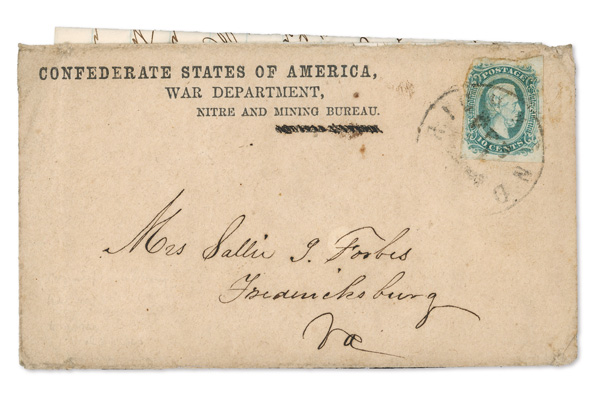 CONFEDERATE STATES OF AMERICA,
WAR DEPARTMENT,
NITRE AND MINING BUREAU.
POSTAGE
10 CENTS
Mrs Sallie I. Forbes
Fredericksburg
Va